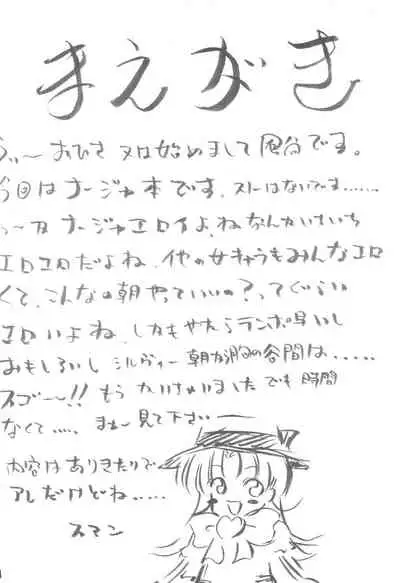 まえがき
おひさ 又は始めまして風谷です。
今回はナージャ本です。ストーリーはないです……
ナージャエロイよね なんかいちいち
エロエロだよね、他の女キャラもみんなエロ
くて、こんなの朝やっていいの？ってぐらい
エロいよね、しかもやたらテンポ早いし
おもしろいし シルヴィー 朝から胸の谷間は、……
スゴ〜〜!! もう かいちゃいました でも 時間
なくて…… まぁ〜見て下さい
内容はありきたりで
アレだけどね……
スマン